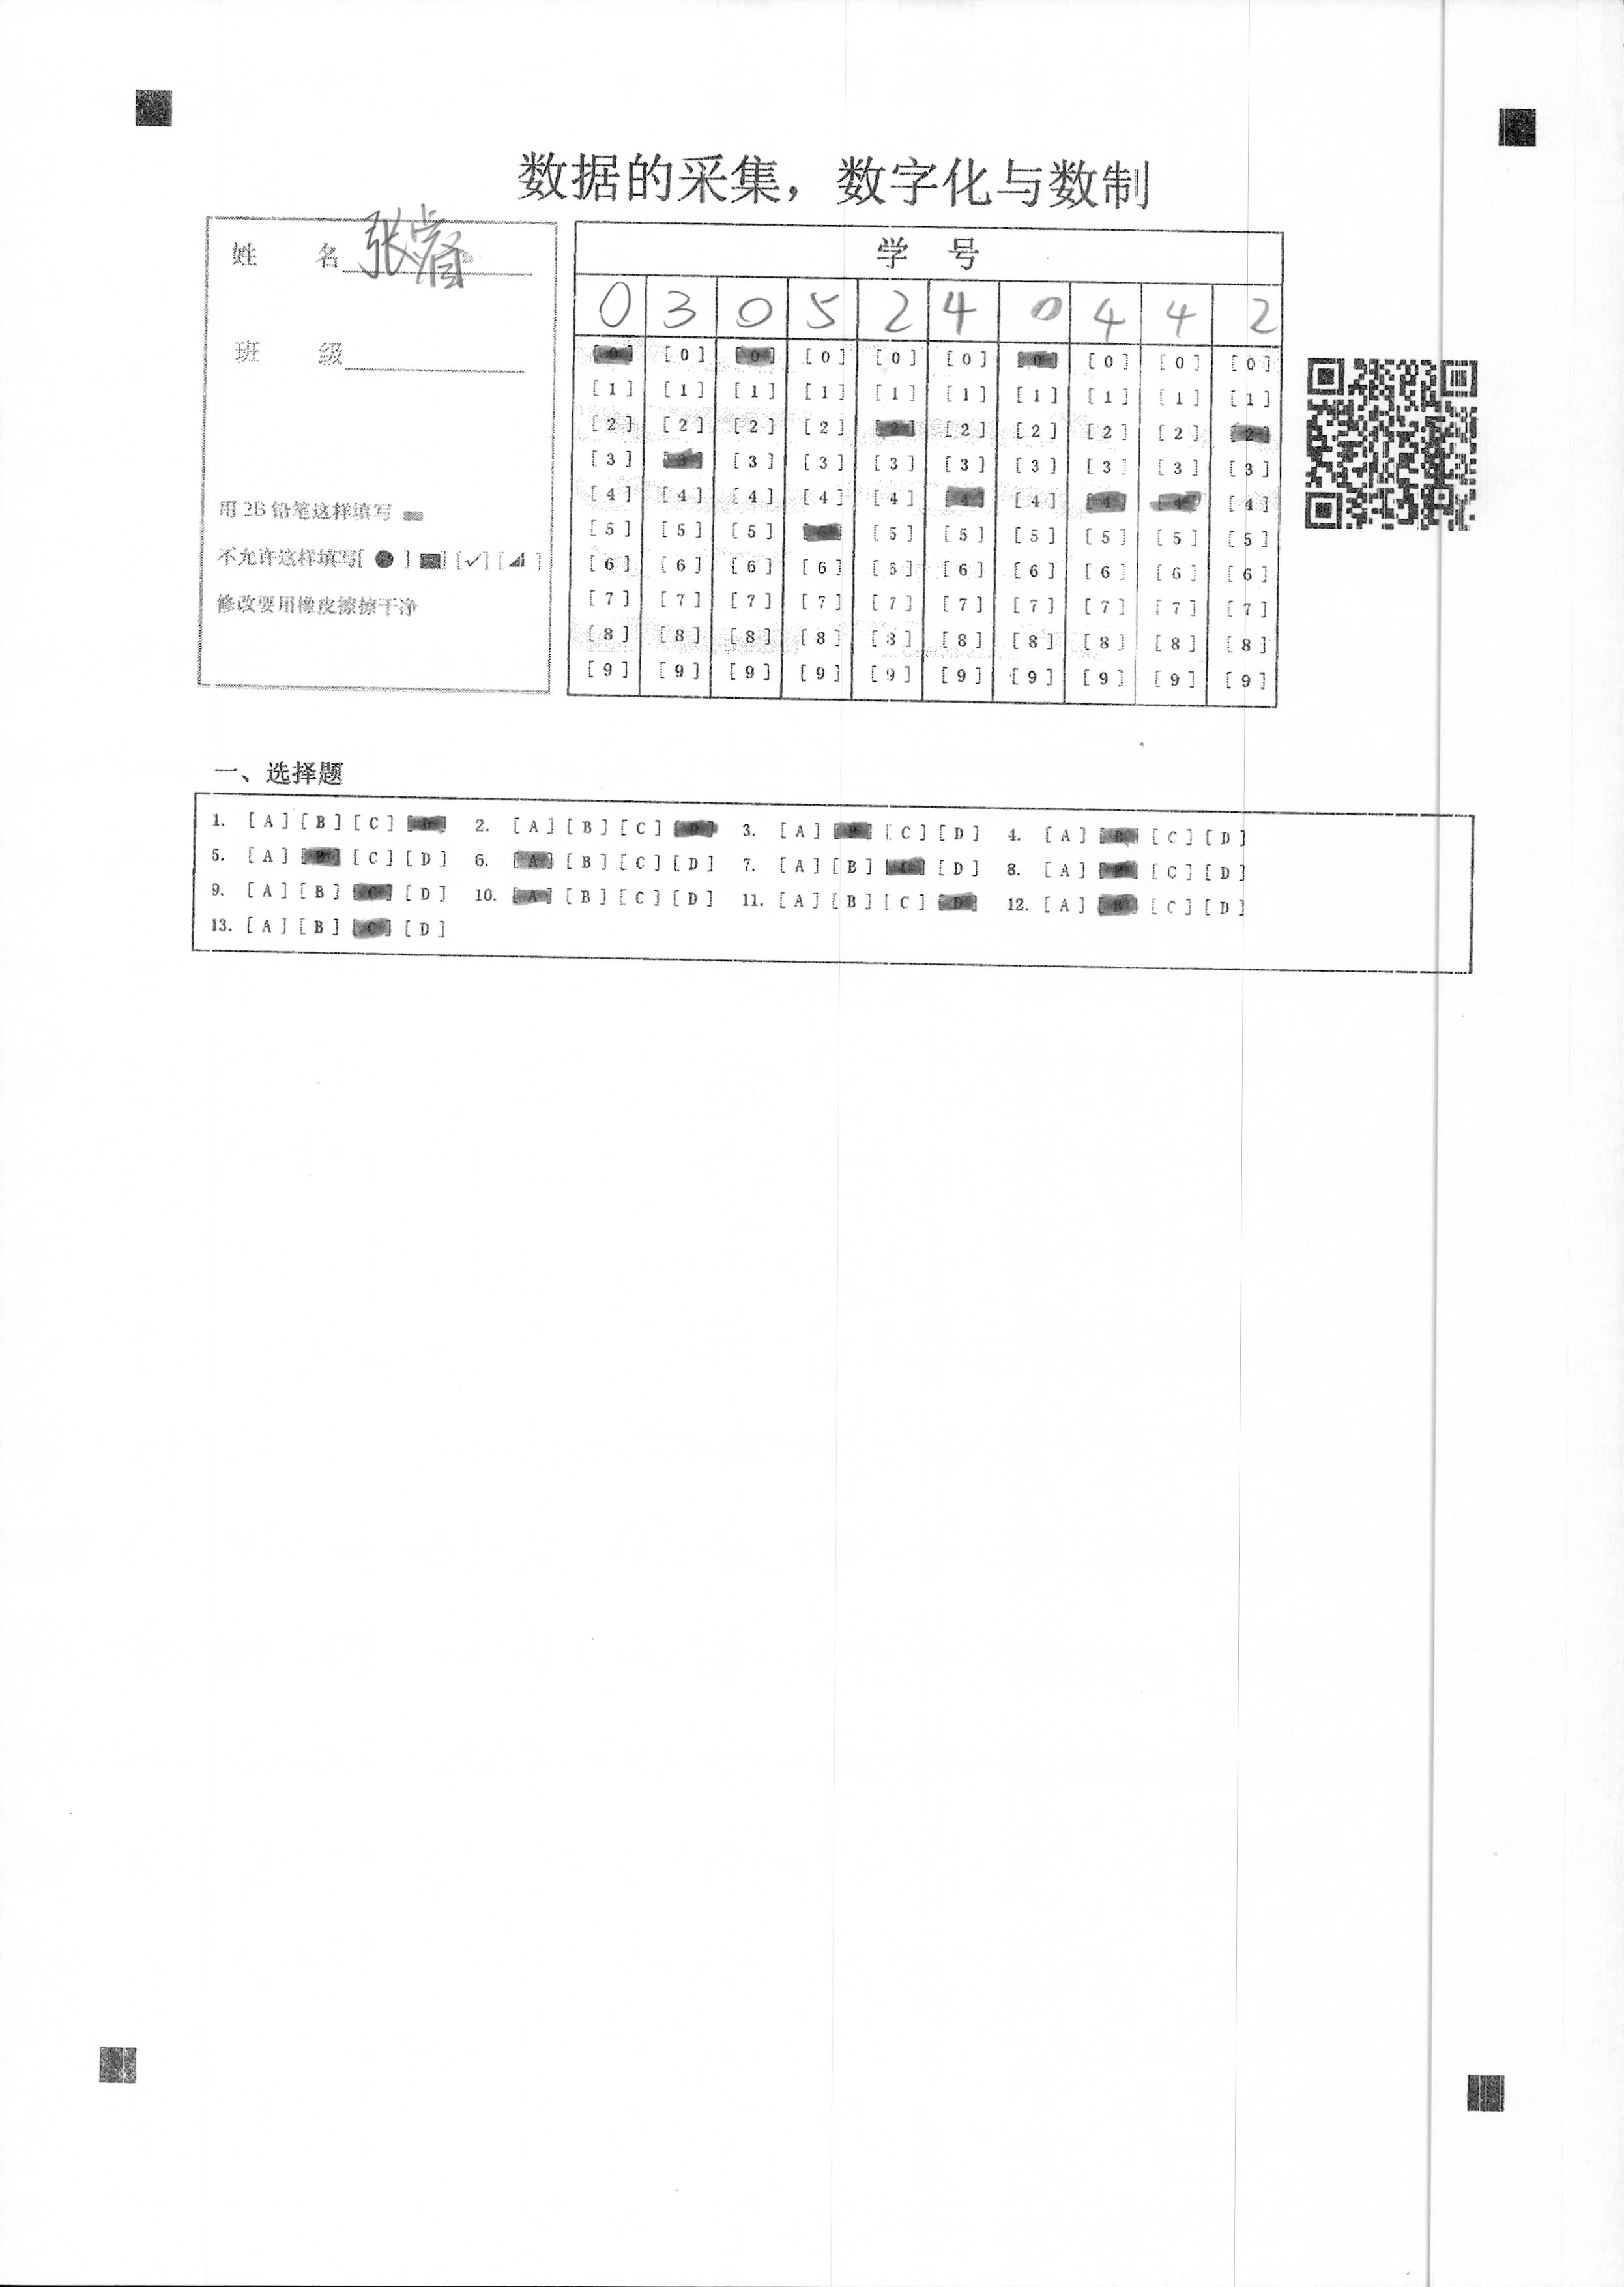 数据的采集，数字化与数制
姓 名 张睿
班 级
用 2B 铅笔这样填写
不允许这样填写[ ● ] [■] [✓] [◢]
修改要用橡皮擦擦干净
学 号
0 3 0 5 2 4 0 4 4 2
[0] [0] [0] [0] [0] [0] [0] [0] [0] [0]
[1] [1] [1] [1] [1] [1] [1] [1] [1] [1]
[2] [2] [2] [2] [2] [2] [2] [2] [2] [2]
[3] [3] [3] [3] [3] [3] [3] [3] [3] [3]
[4] [4] [4] [4] [4] [4] [4] [4] [4] [4]
[5] [5] [5] [5] [5] [5] [5] [5] [5]
[6] [6] [6] [6] [6] [6] [6] [6] [6] [6]
[7] [7] [7] [7] [7] [7] [7] [7] [7] [7]
[8] [8] [8] [8] [8] [8] [8] [8] [8] [8]
[9] [9] [9] [9] [9] [9] [9] [9] [9] [9]
一、选择题
1. [A] [B] [C] [D] 2. [A] [B] [C] [D] 3. [A] [B] [C] [D] 4. [A] [B] [C] [D]
5. [A] [B] [C] [D] 6. [A] [B] [C] [D] 7. [A] [B] [C] [D] 8. [A] [B] [C] [D]
9. [A] [B] [C] [D] 10. [A] [B] [C] [D] 11. [A] [B] [C] [D] 12. [A] [B] [C] [D]
13. [A] [B] [C] [D]